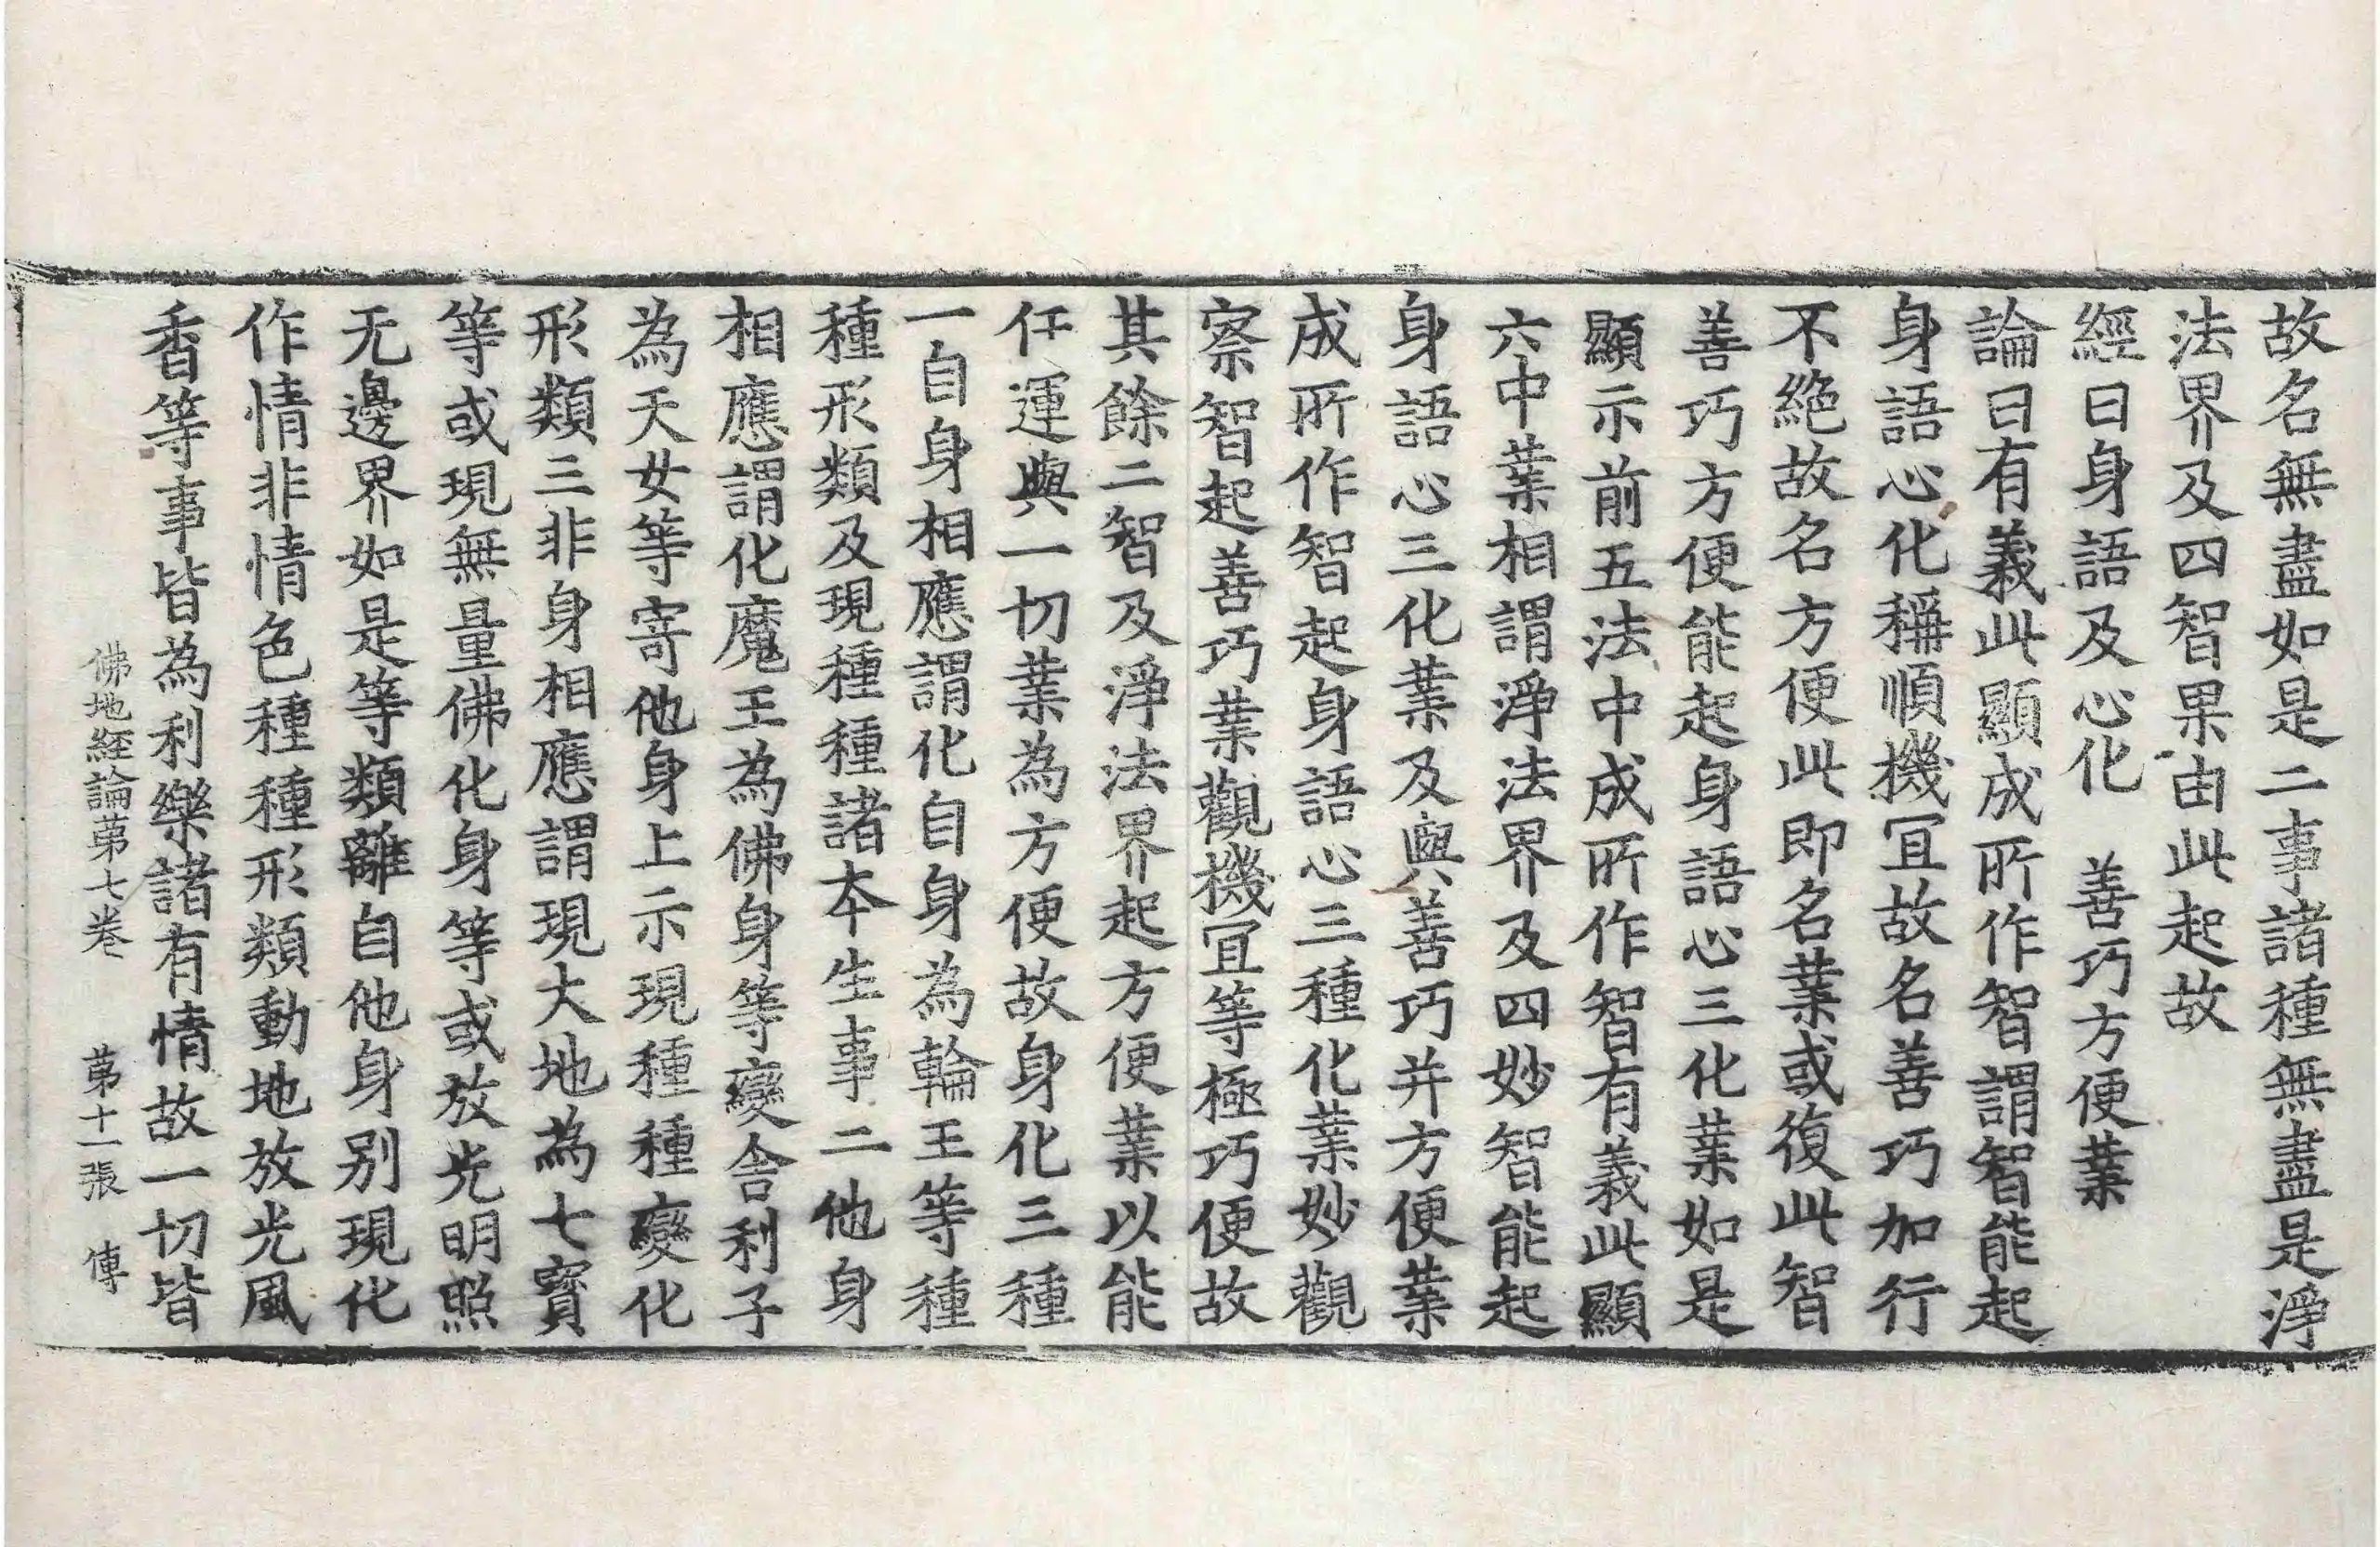 故名無盡如是二事諸種無盡是淨
法界及四智果由此起故
經曰身語及心化　善巧方便業
論曰有義此顯成所作智謂智能起
身語心化稱順機宜故名善巧加行
不絕故名方便此即名業或復此智
善巧方便能起身語心三化業如是
顯示前五法中成所作智有義此顯
六中業相謂淨法界及四妙智能起
身語心三化業及與善巧并方便業
成所作智起身語心三種化業妙觀
察智起善巧業觀機宜等極巧便故
其餘二智及淨法界起方便業以能
任運與一切業為方便故身化三種
一自身相應謂化自身為輪王等種
種形類及現種種諸本生事二他身
相應謂化魔王為佛身等變舍利子
為天女等寄他身上示現種種變化
形類三非身相應謂現大地為七寶
等或現無量佛化身等或放光明照
无邊界如是等類離自他身別現化
作情非情色種種形類動地放光風
香等事皆為利樂諸有情故一切皆
佛地經論苐七卷　苐十一張　傳